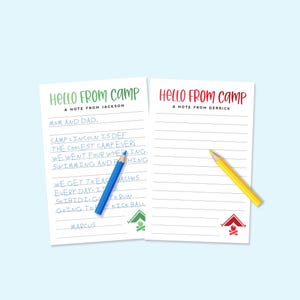 HELLO FROM CAMP
A NOTE FROM JACKSON
MOM AND DAD,
CAMP LINCOLN IS DEF
THE COOLEST CAMP EVER!
WE WENT FOUR WHEELING
SWIMMING AND
WE GET TO EAT
EVERY DAY.
GOING TO KICKBALL
MARCUS
HELLO FROM CAMP
A NOTE FROM DERRICK